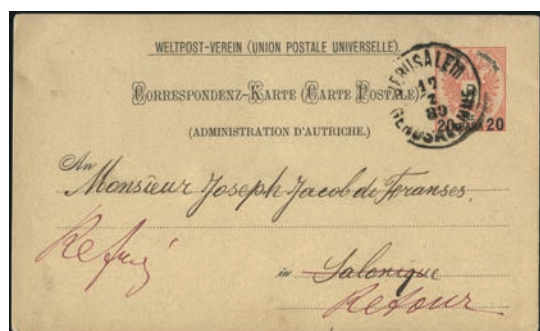 WELTPOST-VEREIN (UNION POSTALE UNIVERSELLE).
CORRESPONDENZ-KARTE (CARTE POSTALE)
(ADMINISTRATION D'AUTRICHE.)
JERUSALEM
12
2
89
GERUSALEMME
20 PARA 20
An
Monsieur Joseph Jacob de Franses,
Refusé
in Salonique
Retour